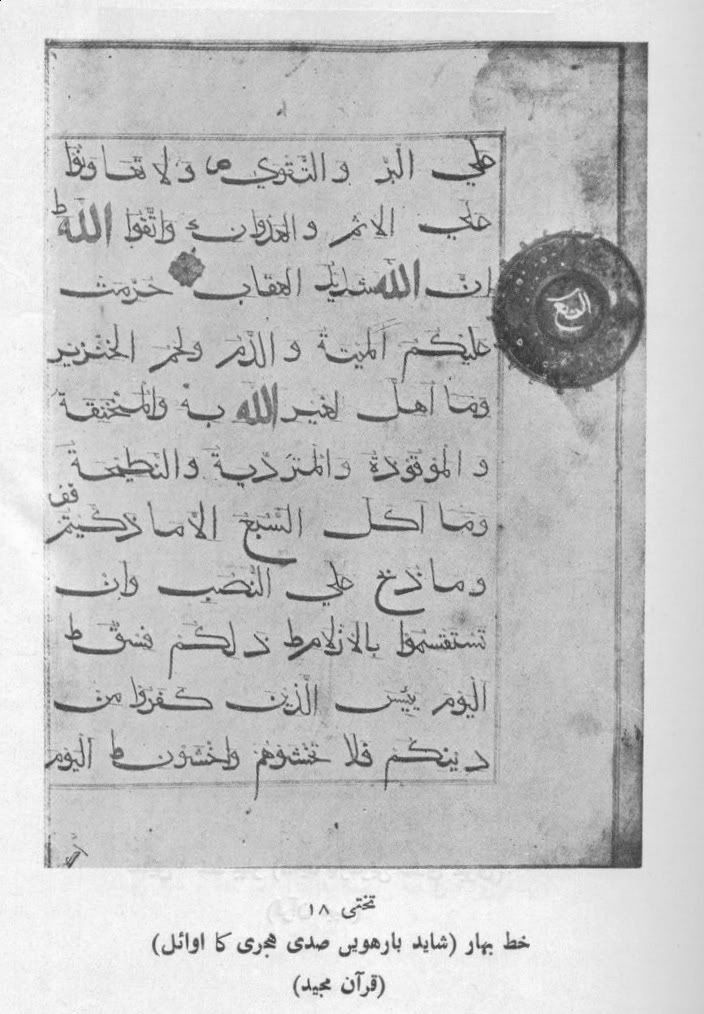 علي البر والتقوي ص ولا تعاونوا
علي الاثم والعدوان واتقوا الله ط
ان الله شديد العقاب حرمت
عليكم الميتة والدم ولحم الخنزير
وما اهل لغير الله به والمنخنقة
والموقوذة والمتردية والنطيحة
وما اكل السبع الا ما ذكيتم قف
وما ذبح علي النصب وان
تستقسموا بالازلام ط ذلكم فسق ط
اليوم يئس الذين كفروا من
دينكم فلا تخشوهم واخشون ط اليوم
تختی ۱۸
خط بہار (شاید بارھویں صدی ھجری کا اوائل)
(قرآن مجید)